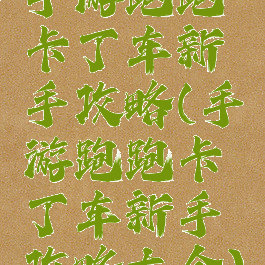 手游跑跑
卡丁车新
手攻略(手
游跑跑卡
丁车新手
攻略大全)